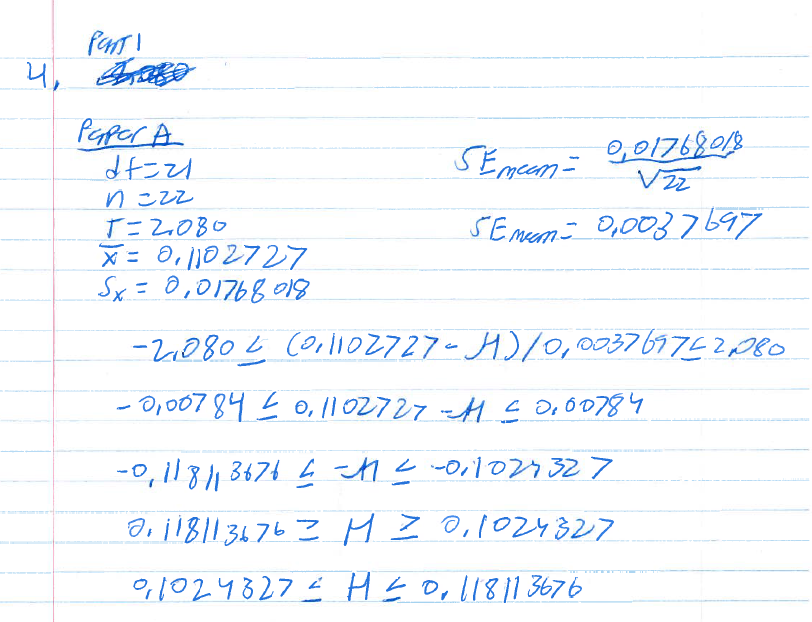 Part 1
4.
Paper A
df = 21
n = 22
T = 2.080
x̄ = 0.1102727
Sx = 0.01768018
SEmean = 0.01768018 / √22
SEmean = 0.0037697
-2.080 ≤ (0.1102727 - M) / 0.0037697 ≤ 2.080
-0.00784 ≤ 0.1102727 - M ≤ 0.00784
-0.118113676 ≤ -M ≤ -0.1024327
0.118113676 ≥ M ≥ 0.1024327
0.1024327 ≤ M ≤ 0.118113676